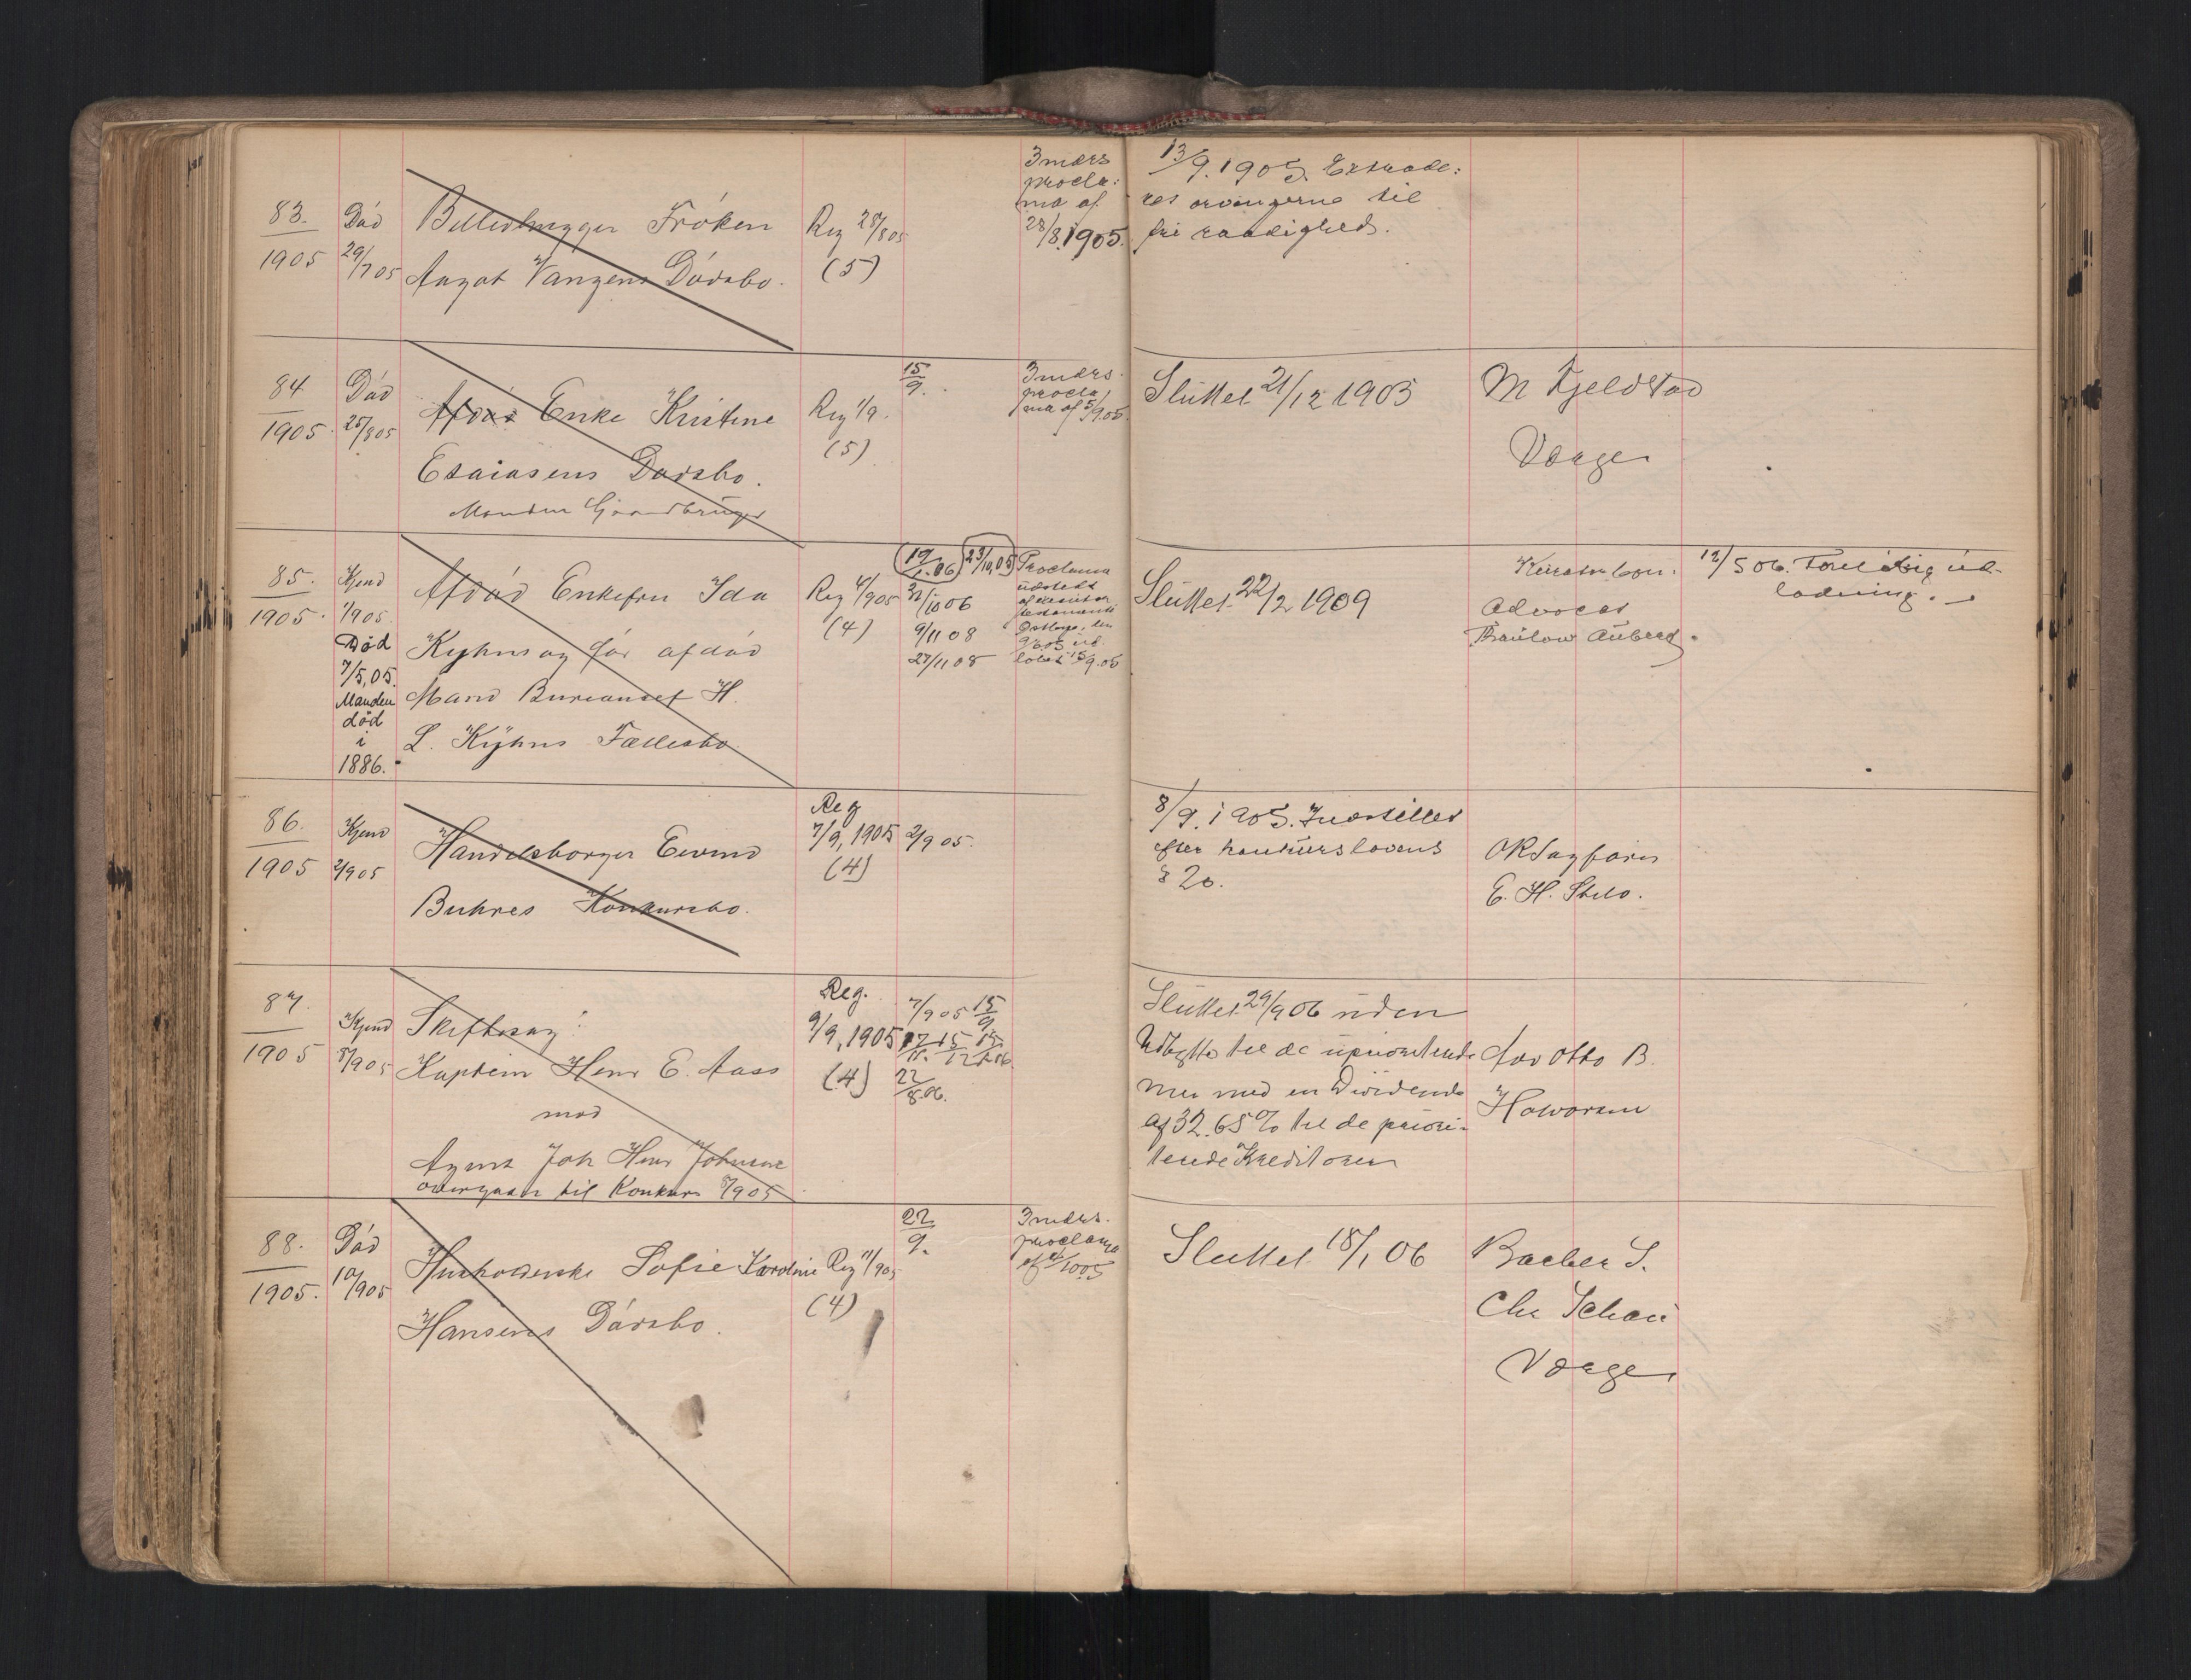 83.
1905
Död
29/7 05
Billedhugger Fröken
Aagot Vangens Dödsbo.
Reg 28/8 05
(5)
3 mdrs
procla:
ma af
28/8.1905.
13/9.1905. Extrade:
res arvingerne til
fri raadighed.
84
1905.
Död
25/8 05
Afdöd Enke Kristine
Esaiasens Dødsbo.
Manden Gaardbruger
Reg 1/9.
(5)
15/9.
3 mdrs.
procla
ma af 5/9 05.
Sluttet 21/12 1905
M Kjeldstad
Værge
85.
1905.
Kjend
1/9 05.
Död
7/5, 05.
Manden
död
i
1886.
Afdöd Enkefru Ida
Kyhns og för afdöd
Mand Bureauchef H.
L. Kyhns Fællesbo
Reg 4/9 05
(4)
19/1.06 23/10,05
9/11 08
27/11 08
Proclama
udstedt
af executor
testamenti
Sluttet 22/2 1909
Advocat
Thaulow Auberg.
12/5 06. Foreløbig ud-
lodning.
86.
1905
Kjend
2/9 05
Handelsborger Eivind
Buhres Konkursbo.
Reg
7/9, 1905
(4)
2/9 05.
8/9. 1905. Indstilles
efter konkurslovens
§ 20.
ORSagfører
E. H.
87.
1905
Kjend
8/9 05
Skiftesag:
Kaptein Henr E. Aass
mod
Agent Joh Henr Johnsne
overgaaet til Konkurs 8/9 05
Reg.
9/9, 1905
(4)
7/9 05 15/9
17/11. 15/12 15/1.06.
22/8.06.
Sluttet 29/9 06 uden
Udbytte til de upriorite
men med en Dividende
af 32.65% til de priori-
terede Kreditorer
Adv Otto B.
Halvorsen
88.
1905.
Död
10/9 05
Husholderske Sofie Karoline
Hansens Dödsbo.
Reg 11/9 05
(4)
22/9.
3 mdrs.
proclama
af 4/10 05
Sluttet 18/1 06
Bagber S.
Chr Schou
Værge